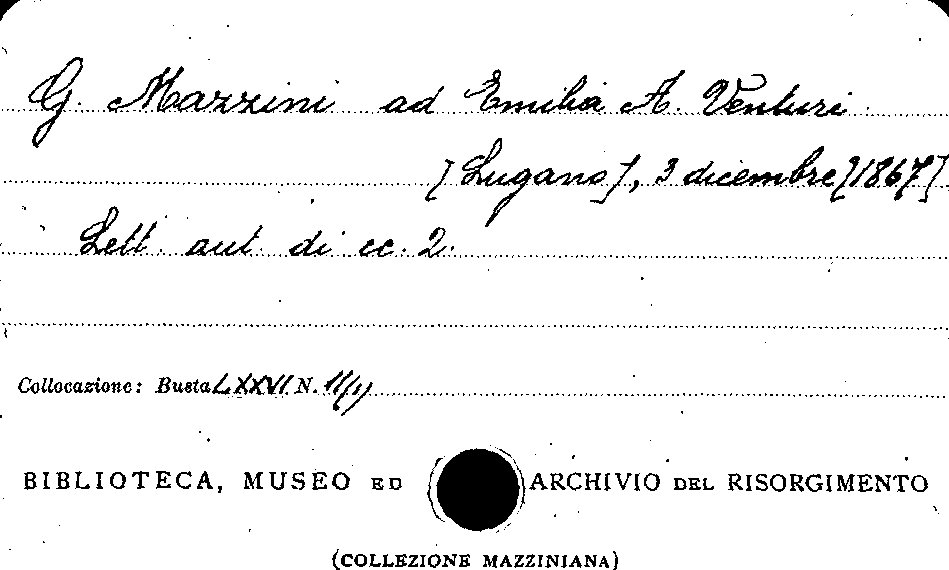 G. Mazzini ad Emilia A. Venturi
[Lugano], 3 dicembre [1867]
Lett. aut. di cc. 2.
Collocazione: Busta LXXVI N.
BIBLIOTECA, MUSEO ED ARCHIVIO DEL RISORGIMENTO
(COLLEZIONE MAZZINIANA)